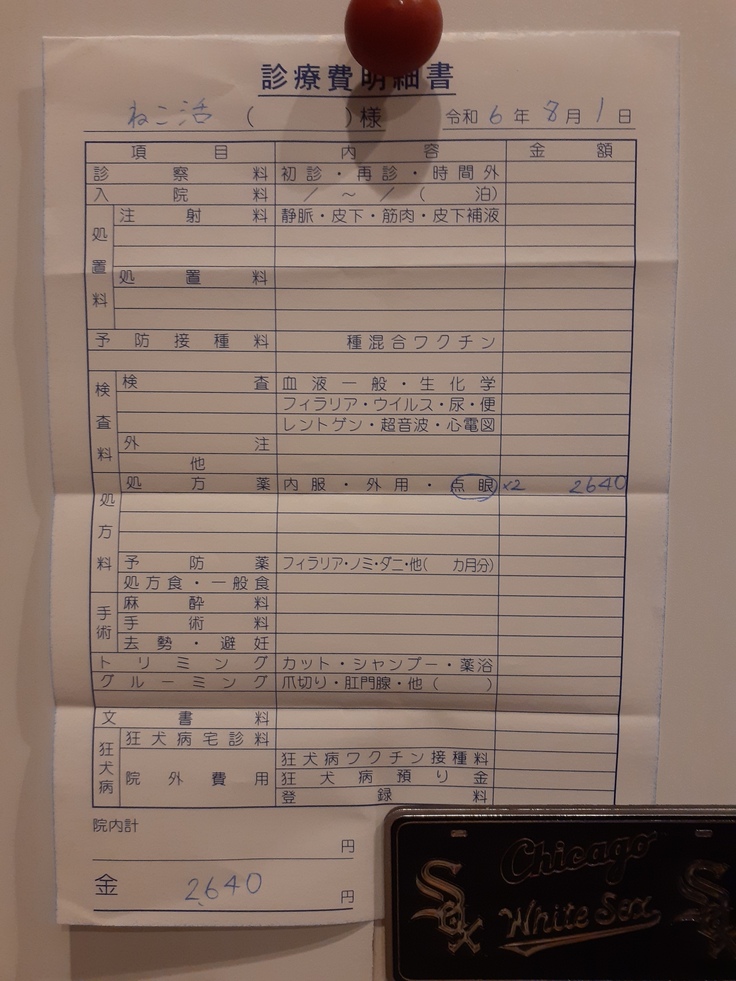 診療費明細書
ねこ活 ( ) 様 令和 6 年 8 月 1 日
項目 内容 金額
診察料 初診・再診・時間外
入院料 / ～ / ( 泊)
処置料
注射料 静脈・皮下・筋肉・皮下補液
処置料
予防接種料 種混合ワクチン
検査料
検査 血液一般・生化学
フィラリア・ウイルス・尿・便
レントゲン・超音波・心電図
外注
他
処方料
処方薬 内服・外用・点眼 ×2 2640
予防薬 フィラリア・ノミ・ダニ・他( カ月分)
処方食・一般食
手術
麻酔料
手術料
去勢・避妊
トリミング カット・シャンプー・薬浴
グルーミング 爪切り・肛門腺・他 ( )
文書料
狂犬病
狂犬病宅診料
院外費用 狂犬病ワクチン接種料
狂犬病預り金
登録料
院内計
円
金 2640 円
Chicago
White Sox
Sox